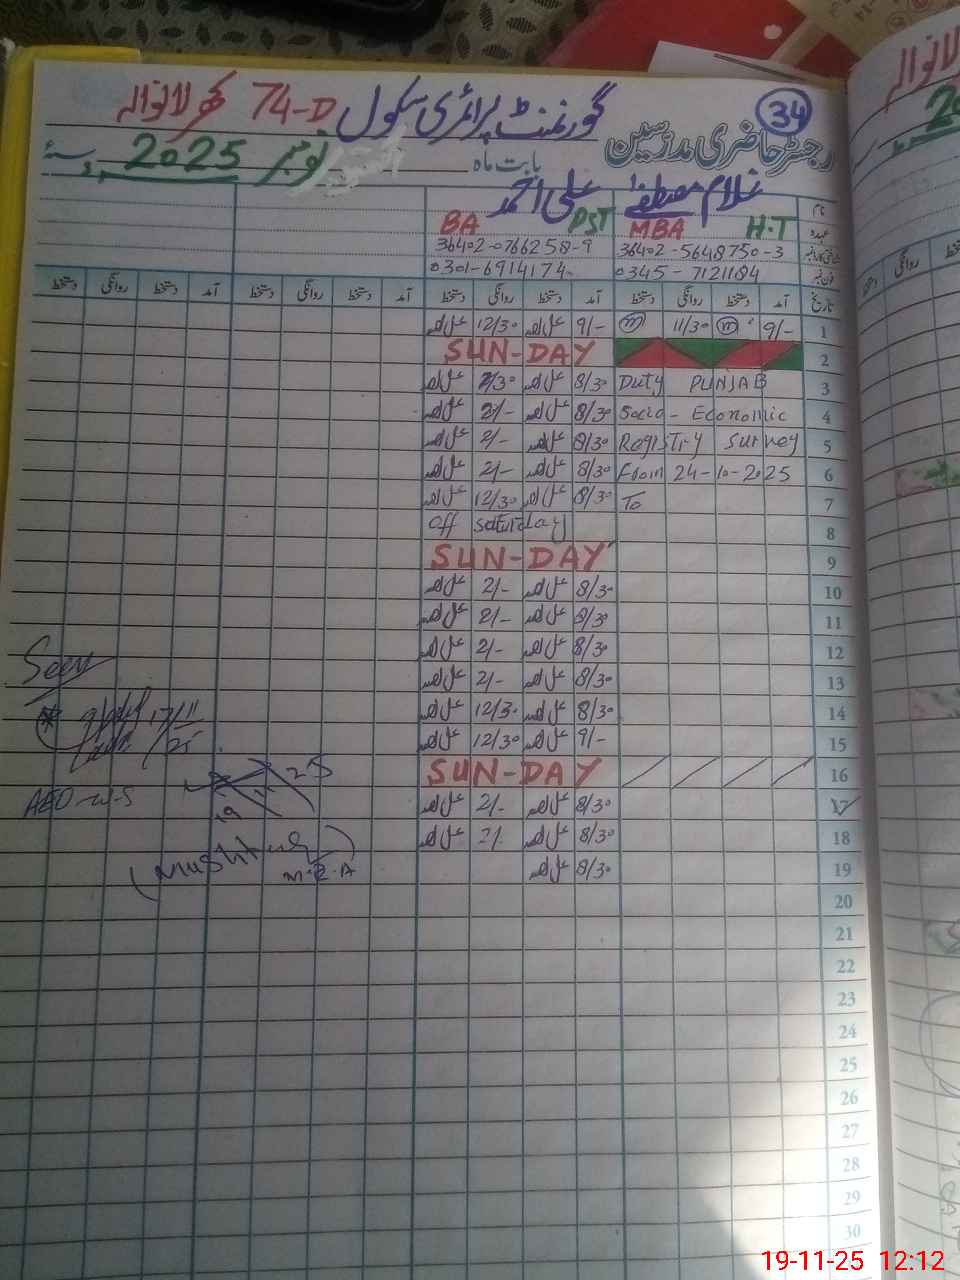 34
گورنمنٹ پرائمری سکول 74-D کھولانوالہ
رجسٹر حاضری مدرسین
بابت ماہ نومبر 2025ء
نام غلام مصطفےٰ علی احمد
عہدہ H.T MBA PST BA
36402-5648750-3 36402-0766258-9
فون نمبر 0345-7121184 0301-6914174
تاریخ آمد دستخط روانگی دستخط آمد دستخط روانگی دستخط آمد دستخط روانگی دستخط آمد دستخط روانگی دستخط
1 9/- m 11/30 m 9/- علی احمد 12/30 علی احمد
2 SUN-DAY
3 Duty PUNJAB 8/30 علی احمد 2/30 علی احمد
4 Socio-Economic 8/30 علی احمد 2/- علی احمد
5 Registry Survey 8/30 علی احمد 2/- علی احمد
6 From 24-10-2025 8/30 علی احمد 2/- علی احمد
7 To 8/30 علی احمد 12/30 علی احمد
8 off saturday
9 SUN-DAY
10 8/30 علی احمد 2/- علی احمد
11 8/30 علی احمد 2/- علی احمد
12 8/30 علی احمد 2/- علی احمد
13 8/30 علی احمد 2/- علی احمد
14 8/30 علی احمد 12/30 علی احمد
15 9/- علی احمد 12/30 علی احمد
16 SUN-DAY
17 8/30 علی احمد 2/- علی احمد
18 8/30 علی احمد 2/- علی احمد
19 8/30 علی احمد
20
21
22
23
24
25
26
27
28
29
30
Seen
17/11/25
AEO-W-S
19 11 25
(Mushtaq)
M.E.A
19-11-25 12:12